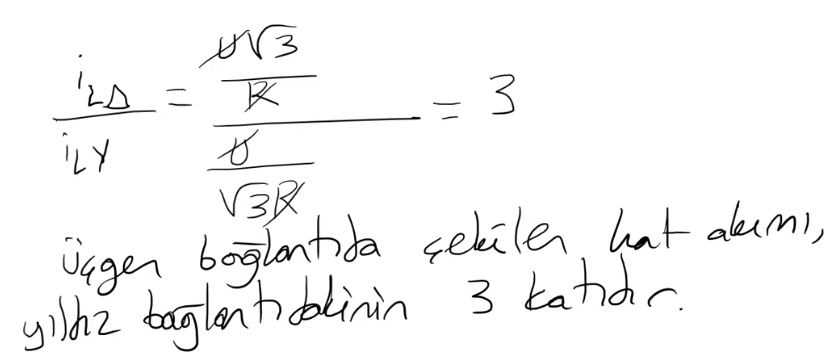 i_LΔ / i_LY = (U√3 / R) / (U / √3R) = 3
Üçgen bağlantıda çekilen hat akımı,
yıldız bağlantıdakinin 3 katıdır.